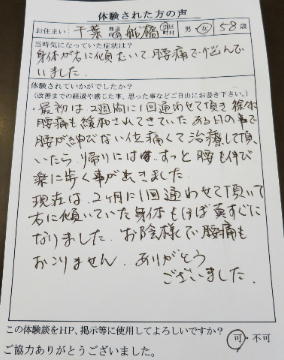 体験された方の声
お住まい: 千葉 県 船橋 市 男・女 58歳
当時気になっていた症状は？
身体が右に傾むいて、腰痛で悩んで
いました。
体験されていかがでしたか？
(改善までの経過や感じた事、思った事などご自由にお書き下さい。)
・最初は2週間に1回通わせて頂き
腰痛も緩和されてきていた ある日の事で
腰がのびない位痛くて治療して頂
いたら 帰りには すっと腰も伸び
楽に歩く事が出来ました。
現在は、2ヶ月に1回通わせて頂いて
右に傾いていた身体もほぼ真すぐに
なりました。お陰様で腰痛も
おこりません。ありがとう
ございました。
この体験談をHP、掲示等に使用してよろしいですか？
可・不可
ご協力ありがとうございました。